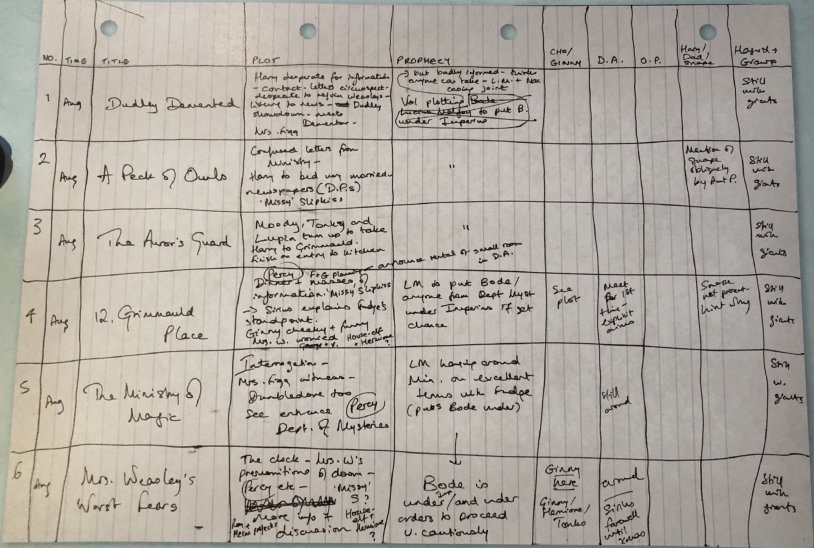 NO. TIME TITLE PLOT PROPHECY CHO/ GINNY D.A. O.P. Harry/ Dad/ Snape Hagrid + Grawp
1 Aug Dudley Demented
Harry desperate for information
- contact - letters circumspect -
desperate to rejoin Weasleys -
listening to news - Dudley
showdown - meets
Dementor -
Mrs. Figg
but badly informed -
anyone can take - L.M. + Nott
casing joint
Vol plotting Bode
Lucius Malfoy to put B.
under Imperius
Still
with
giants
2 Aug A Peck of Owls
Confused letters from
Ministry -
Harry to bed very worried -
newspapers (D.P.s)
'Missy' Slipkiss
"
Mention of
Snape
obliquely
by Aunt P.
Still
with
giants
3 Aug The Auror's Guard
Moody, Tonks and
Lupin turn up to take
Harry to Grimmauld.
Finish on entry to kitchen
"
Still
with
giants
4 Aug 12, Grimmauld
Place
Percy F+G plan - announce rental of small room
in D.A.
Dinner + masses of
information. 'Missy' Slipkiss
→ Sirius explains Fudge's
standpoint.
Ginny cheeky + funny
Mrs. W. worried House-elf
+ Hermione?
LM to put Bode/
anyone from Dept Myst
under Imperius if get
chance
See
plot
Meet
for 1st
time -
explicit
Snape
not present
hint
Still
with
giants
5 Aug The Ministry of
Magic
Interrogation -
Mrs. Figg witness -
Dumbledore too
See entrance Percy
Dept. of Mysteries
LM hanging around
Min. on excellent
terms with Fudge
(puts Bode under)
still
around
Still
w.
giants
6 Aug Mrs. Weasley's
Worst Fears
The clock - Mrs. W's
premonitions of doom -
Percy etc - 'Missy'
S?
more info + House-
elf +
discussion Hermione
?
Bode is
under/and under
orders to proceed
v. cautiously
Ginny
here
Ginny/
Hermione/
Tonks
around
Sirius
farewell
until
Still
with
giants